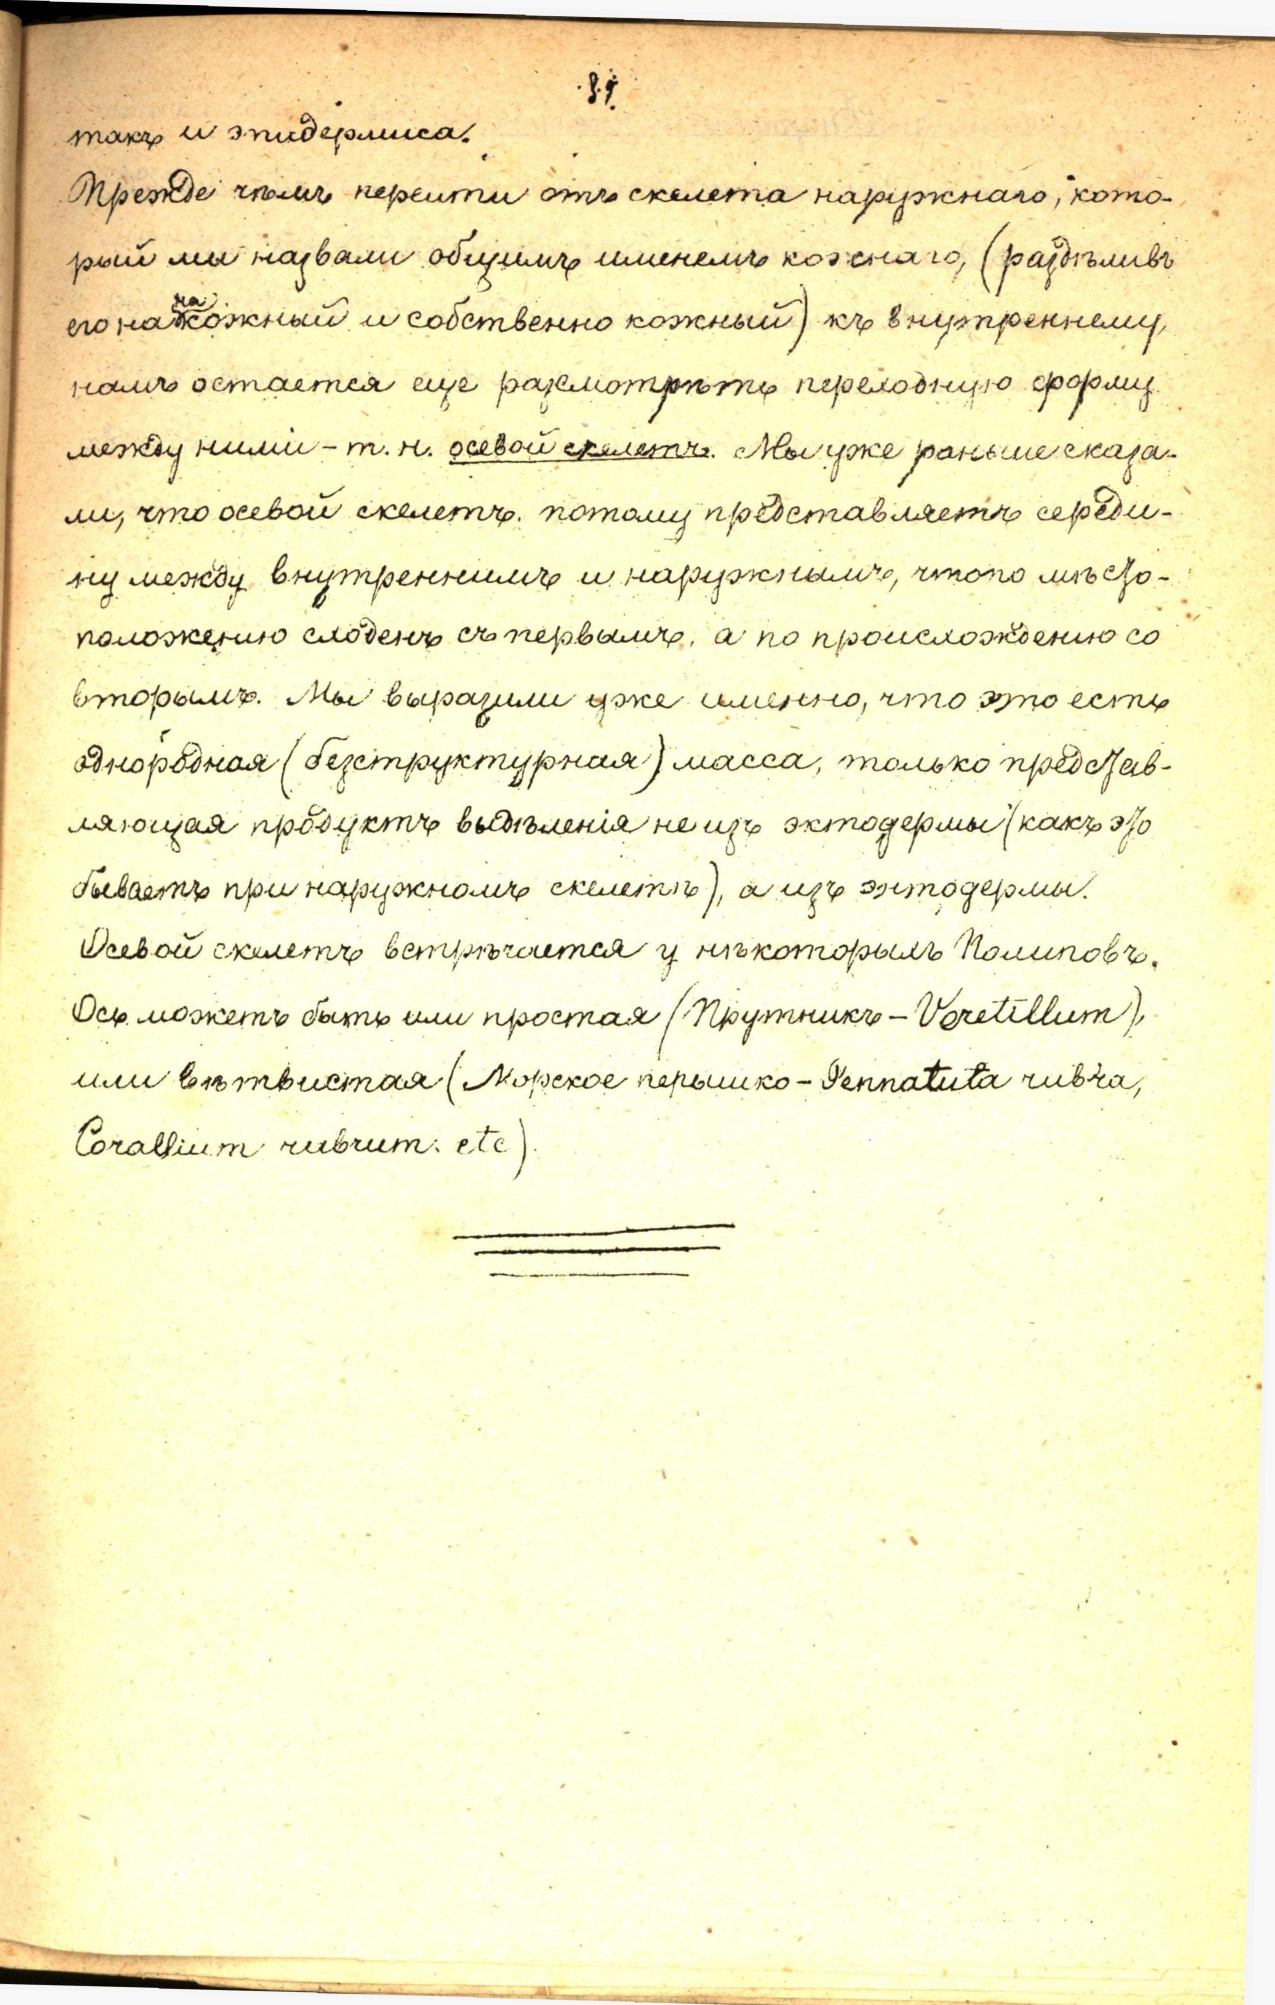 такъ и эпидермиса.
Прежде чѣмъ перейти отъ скелета наружнаго, кото-
рый мы назвали общимъ именемъ кожнаго, (раздѣливъ
его на накожный и собственно кожный) къ внутреннему,
намъ остается еще разсмотрѣть переходную форму
между ними - т. н. осевой скелетъ. Мы уже раньше сказа-
ли, что осевой скелетъ потому представляетъ середи-
ну между внутреннимъ и наружнымъ, что по мѣсто-
положенію сходенъ съ первымъ, а по происхожденію со
вторымъ. Мы выразили уже именно, что это есть
однородная (безструктурная) масса, только представ-
ляющая продуктъ выдѣленія не изъ эктодермы (какъ это
бываетъ при наружномъ скелетѣ), а изъ энтодермы.
Осевой скелетъ встрѣчается у нѣкоторыхъ Полиповъ.
Ось можетъ быть или простая (Прутникъ - Veretillum),
или вѣтвистая (Морское перышко - Pennatula rubra,
Corallium rubrum. etc).